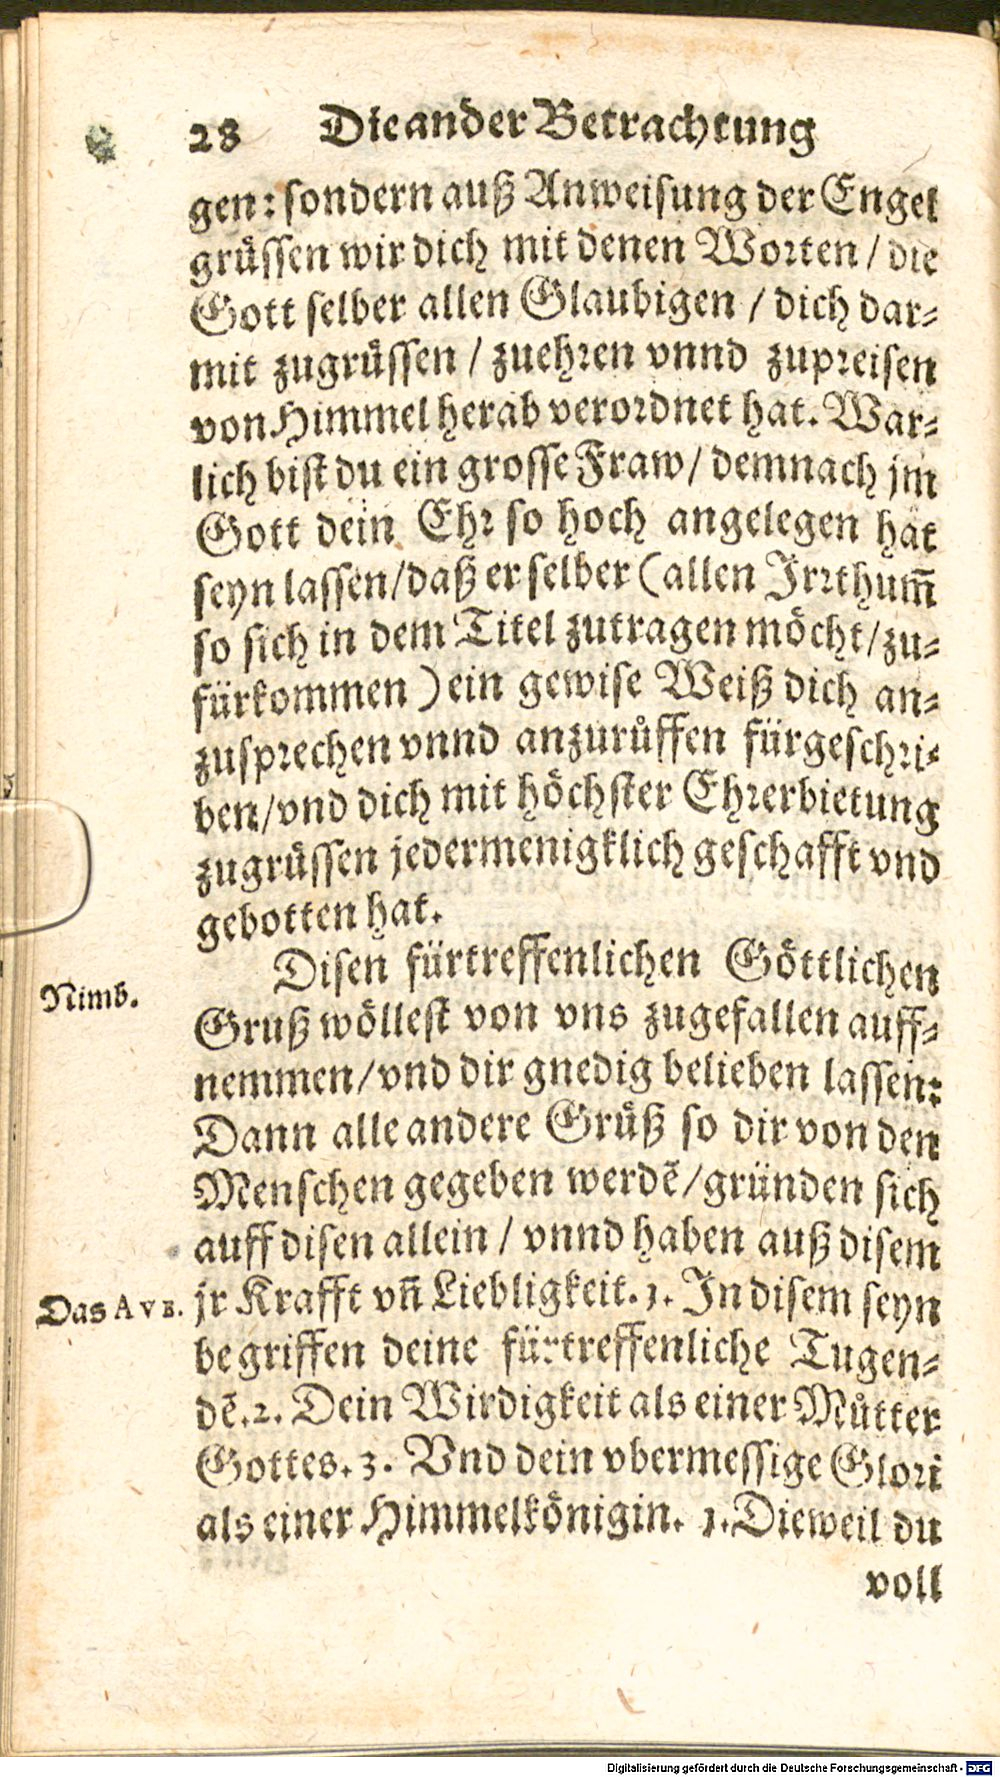 28 Die ander Betrachtung
gen: sondern auß Anweisung der Engel
grüssen wir dich mit denen Worten / die
Gott selber allen Glaubigen / dich dar-
mit zugrüssen / zuehren vnnd zupreisen
von Himmel herab verordnet hat. War-
lich bist du ein grosse Fraw / demnach jm
Gott dein Ehr so hoch angelegen hat
seyn lassen / daß er selber (allen Irrthum̃
so sich in dem Titel zutragen möcht / zu-
fürkommen) ein gewise Weiß dich an-
zusprechen vnnd anzurůffen fürgeschri-
ben / vnd dich mit höchster Ehrerbietung
zugrüssen jedermenigklich geschafft vnd
gebotten hat.
Disen fürtreffenlichen Göttlichen
Nimb.
Gruß wöllest von vns zugefallen auff-
nemmen / vnd dir gnedig belieben lassen:
Dann alle andere Grüß so dir von den
Menschen gegeben werdẽ / gründen sich
auff disen allein / vnnd haben auß disem
Das AVE.
jr Krafft vñ Liebligkeit. 1. In disem seyn
begriffen deine fürtreffenliche Tugen-
dẽ. 2. Dein Wirdigkeit als einer Můtter
Gottes. 3. Vnd dein vbermessige Glori
als einer Himmelkönigin. 1. Dieweil du
voll
Digitalisierung gefördert durch die Deutsche Forschungsgemeinschaft - DFG